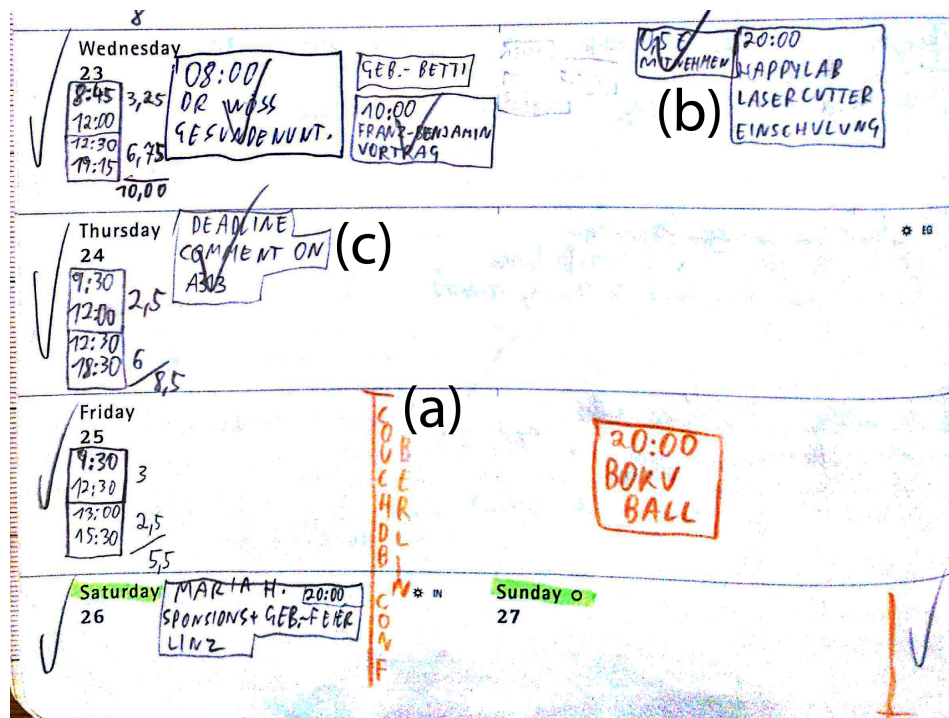 8
Wednesday
23
8:45
12:00
3,25
12:30
19:15
6,75
10,00
08:00
DR WÖSS
GESUNDENUNT.
GEB.- BETTI
10:00
FRANZ-BENJAMIN
VORTRAG
MITNEHMEN
(b)
20:00
HAPPYLAB
LASERCUTTER
EINSCHULUNG
Thursday
24
9:30
12:00
2,5
12:30
18:30
6
8,5
DEADLINE
COMMENT ON
A303
(c)
EG
Friday
25
9:30
12:30
3
13:00
15:30
2,5
5,5
(a)
COUCHDB
BERLIN
CONF
20:00
BOKU
BALL
Saturday
26
MARIA H. 20:00
SPONSIONS+GEB.-FEIER
LINZ
IN
Sunday
27